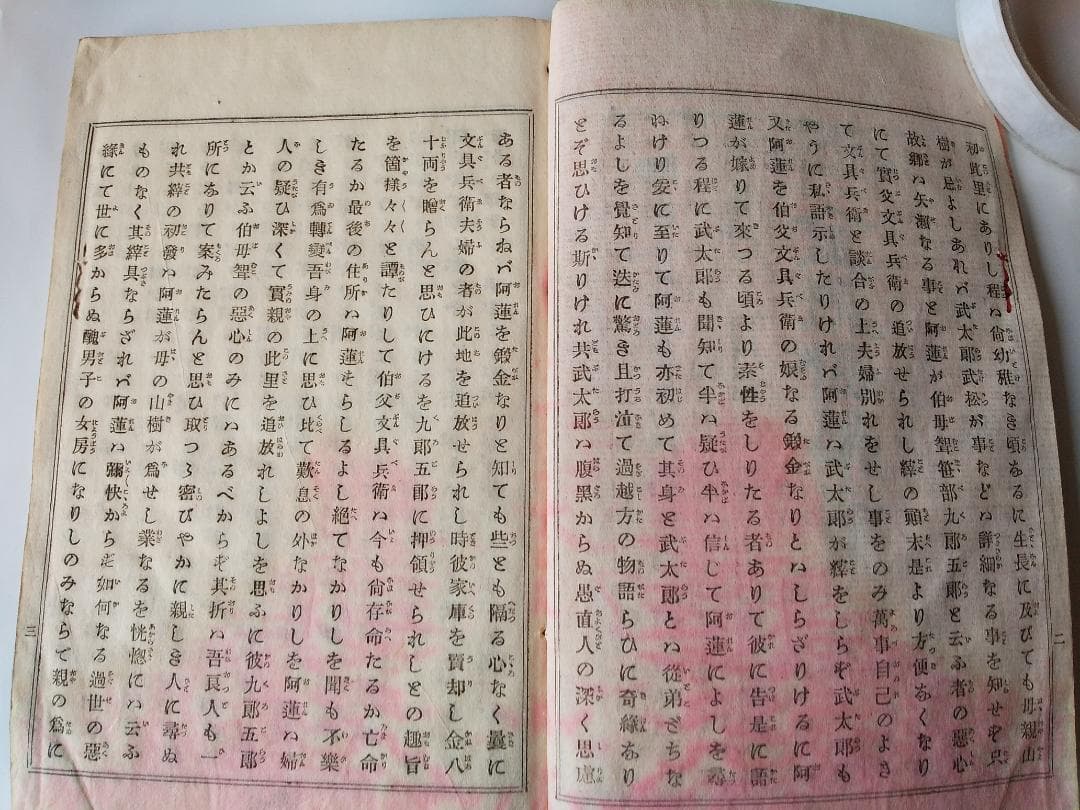 初此里にありし程ハ尙幼稚なき頃あるに生長に及びても母親山
樹が忌よしあれバ武太郎武松が事などハ詳細なる事を知せぞ只
故鄕ハ矢瀬なる事と阿蓮が伯母聟笹部九郎五郎と云ふ者の惡心
にて實父文具兵衛の追放せられし縡の顚末是より方便あくなり
て文具兵衛と談合の上夫婦別れをせし事をのみ萬事自己のよき
やうに私語示したりけれバ阿蓮ハ武太郎が縡をしらぞ武太郎も
又阿蓮を伯父文具兵衛の娘なる鍛金なりとハしらざりけるに阿
蓮が嫁りて來つる頃より素性をしりたる者ありて彼に告是に語
りつる程に武太郎も聞知て半ハ疑ひ半ハ信じて阿蓮によしを尋
けり玆に至りて阿蓮も亦初めて其身と武太郎とハ從弟どちな
るよしを覺知て迭に驚き且打泣て過越方の物語らひに奇緣あり
とぞ思ひける斯りけれ共武太郎ハ腹黑からぬ愚直人の深く思慮
二
ある者ならねバ阿蓮を鍛金なりと知ても些とも隔る心なく曩に
文具兵衛夫婦の者が此地を追放せられし時彼家庫を賣却し金八
十両を贈らんと思ひにけるを九郎五郎に押領せられしとの趣旨
を箇樣々々と譚たりして伯父文具兵衛ハ今も尙存命たるか亡命
たるか最後の住所ハ阿蓮もらしるよし絕てなかりしを聞も不樂
しき有爲轉變吾身の上に思ひ比て歎息の外なかりしを阿蓮ハ婦
人の疑ひ深くて實親の此里を追放れしよしを思ふに彼九郎五郎
とか云ふ伯母聟の惡心のみにハあるべからぞ其折ハ吾良人も一
所にありて案みたらんと思ひ取つゝ密びやかに親しき人に尋ぬ
れ共縡の初發ハ阿蓮が母の山樹が爲せし業なるを恍惚にハ云ふ
ものなく其縡具ならざれバ阿蓮ハ彌快からぞ如何なる過世の惡
緣にて世に多からぬ醜男子の女房になりしのみならで親の爲に
三